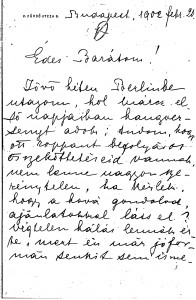 Budapest, 1902 febr. 21
Édes Barátom!
Jövő héten Berlinbe
utazom, hol márcz. el-
ső napjaiban hangver-
senyt adok; tudom, hogy
ott roppant befolyásos
összeköttetéseid vannak,
nem lenne nagyon sze-
rénytelen, ha kérlek,
hogy, a hová gondolod,
ajánlatokkal láss el?
Végtelen hálás lennék ér-
te, mert én már jófor-
mán senkit sem isme-